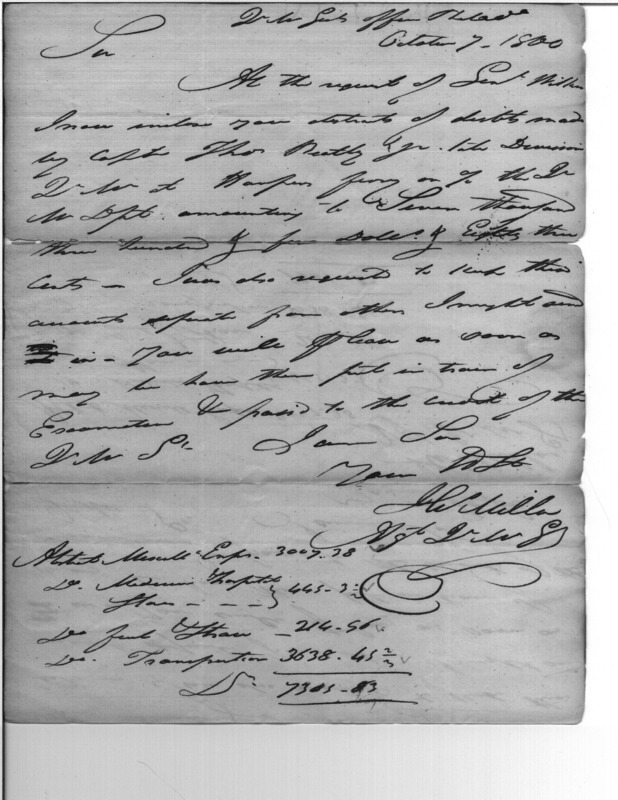 Qr Mr Genls office Philada
October 7 - 1800
Sir
At the request of Genl. Wilkin
I now inclose you abstracts of debts made
by Captn Thos Beatty & Jr. late Division
Qr Mr at Harpers ferry on % the Qr
M Dept. amounting to Seven Thousand
three hundred & five Dolls. & Eighty three
Cents - I was also request to keep these
accounts seperate from others I might send
in - You will please as soon as
may be have them put in train of
Examination & pass'd to the credit of the
Qr Mr Gl. I am Sir
Your Ob St
J W Miller
Agt Qr Mr Gl
Abstract Miscells Exps - 3007.38
Do. Medicine & hospital
Stores - - - } 445 - 3
Do fuel & Straw - 214 - 56
Do. Transportion 3638 - 45 2/3
Ds. 7305 - 83